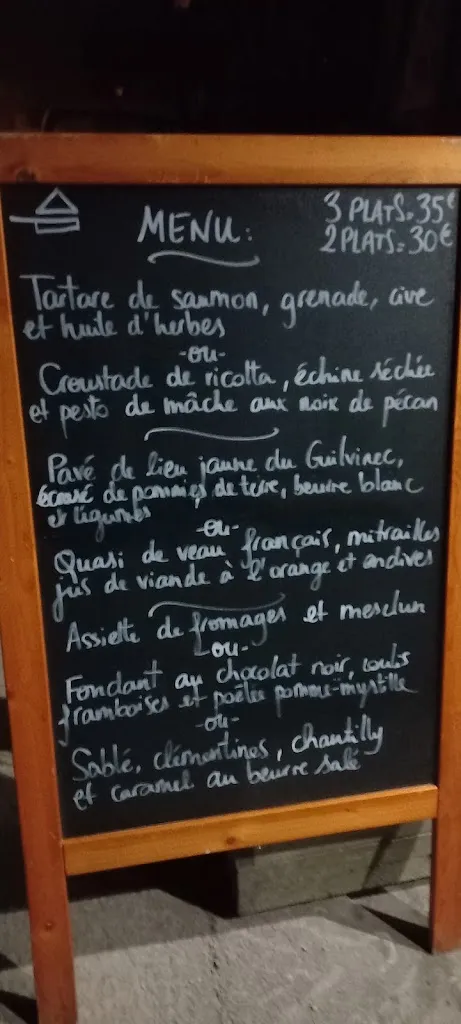 MENU:
3 PLATS = 35€
2 PLATS = 30€
Tartare de saumon, grenade, cive
et huile d'herbes
-ou-
Croustade de ricotta, échine séchée
et pesto de mâche aux noix de pécan
Pavé de lieu jaune du Guilvinec,
écrasé de pommes de terre, beurre blanc
et légumes
-ou-
Quasi de veau français, mitrailles
jus de viande à l'orange et endives
Assiette de fromages et mesclun
-ou-
Fondant au chocolat noir, coulis
framboises et poêlée pomme-myrtille
-ou-
Sablé, clémentines, chantilly
et caramel au beurre salé